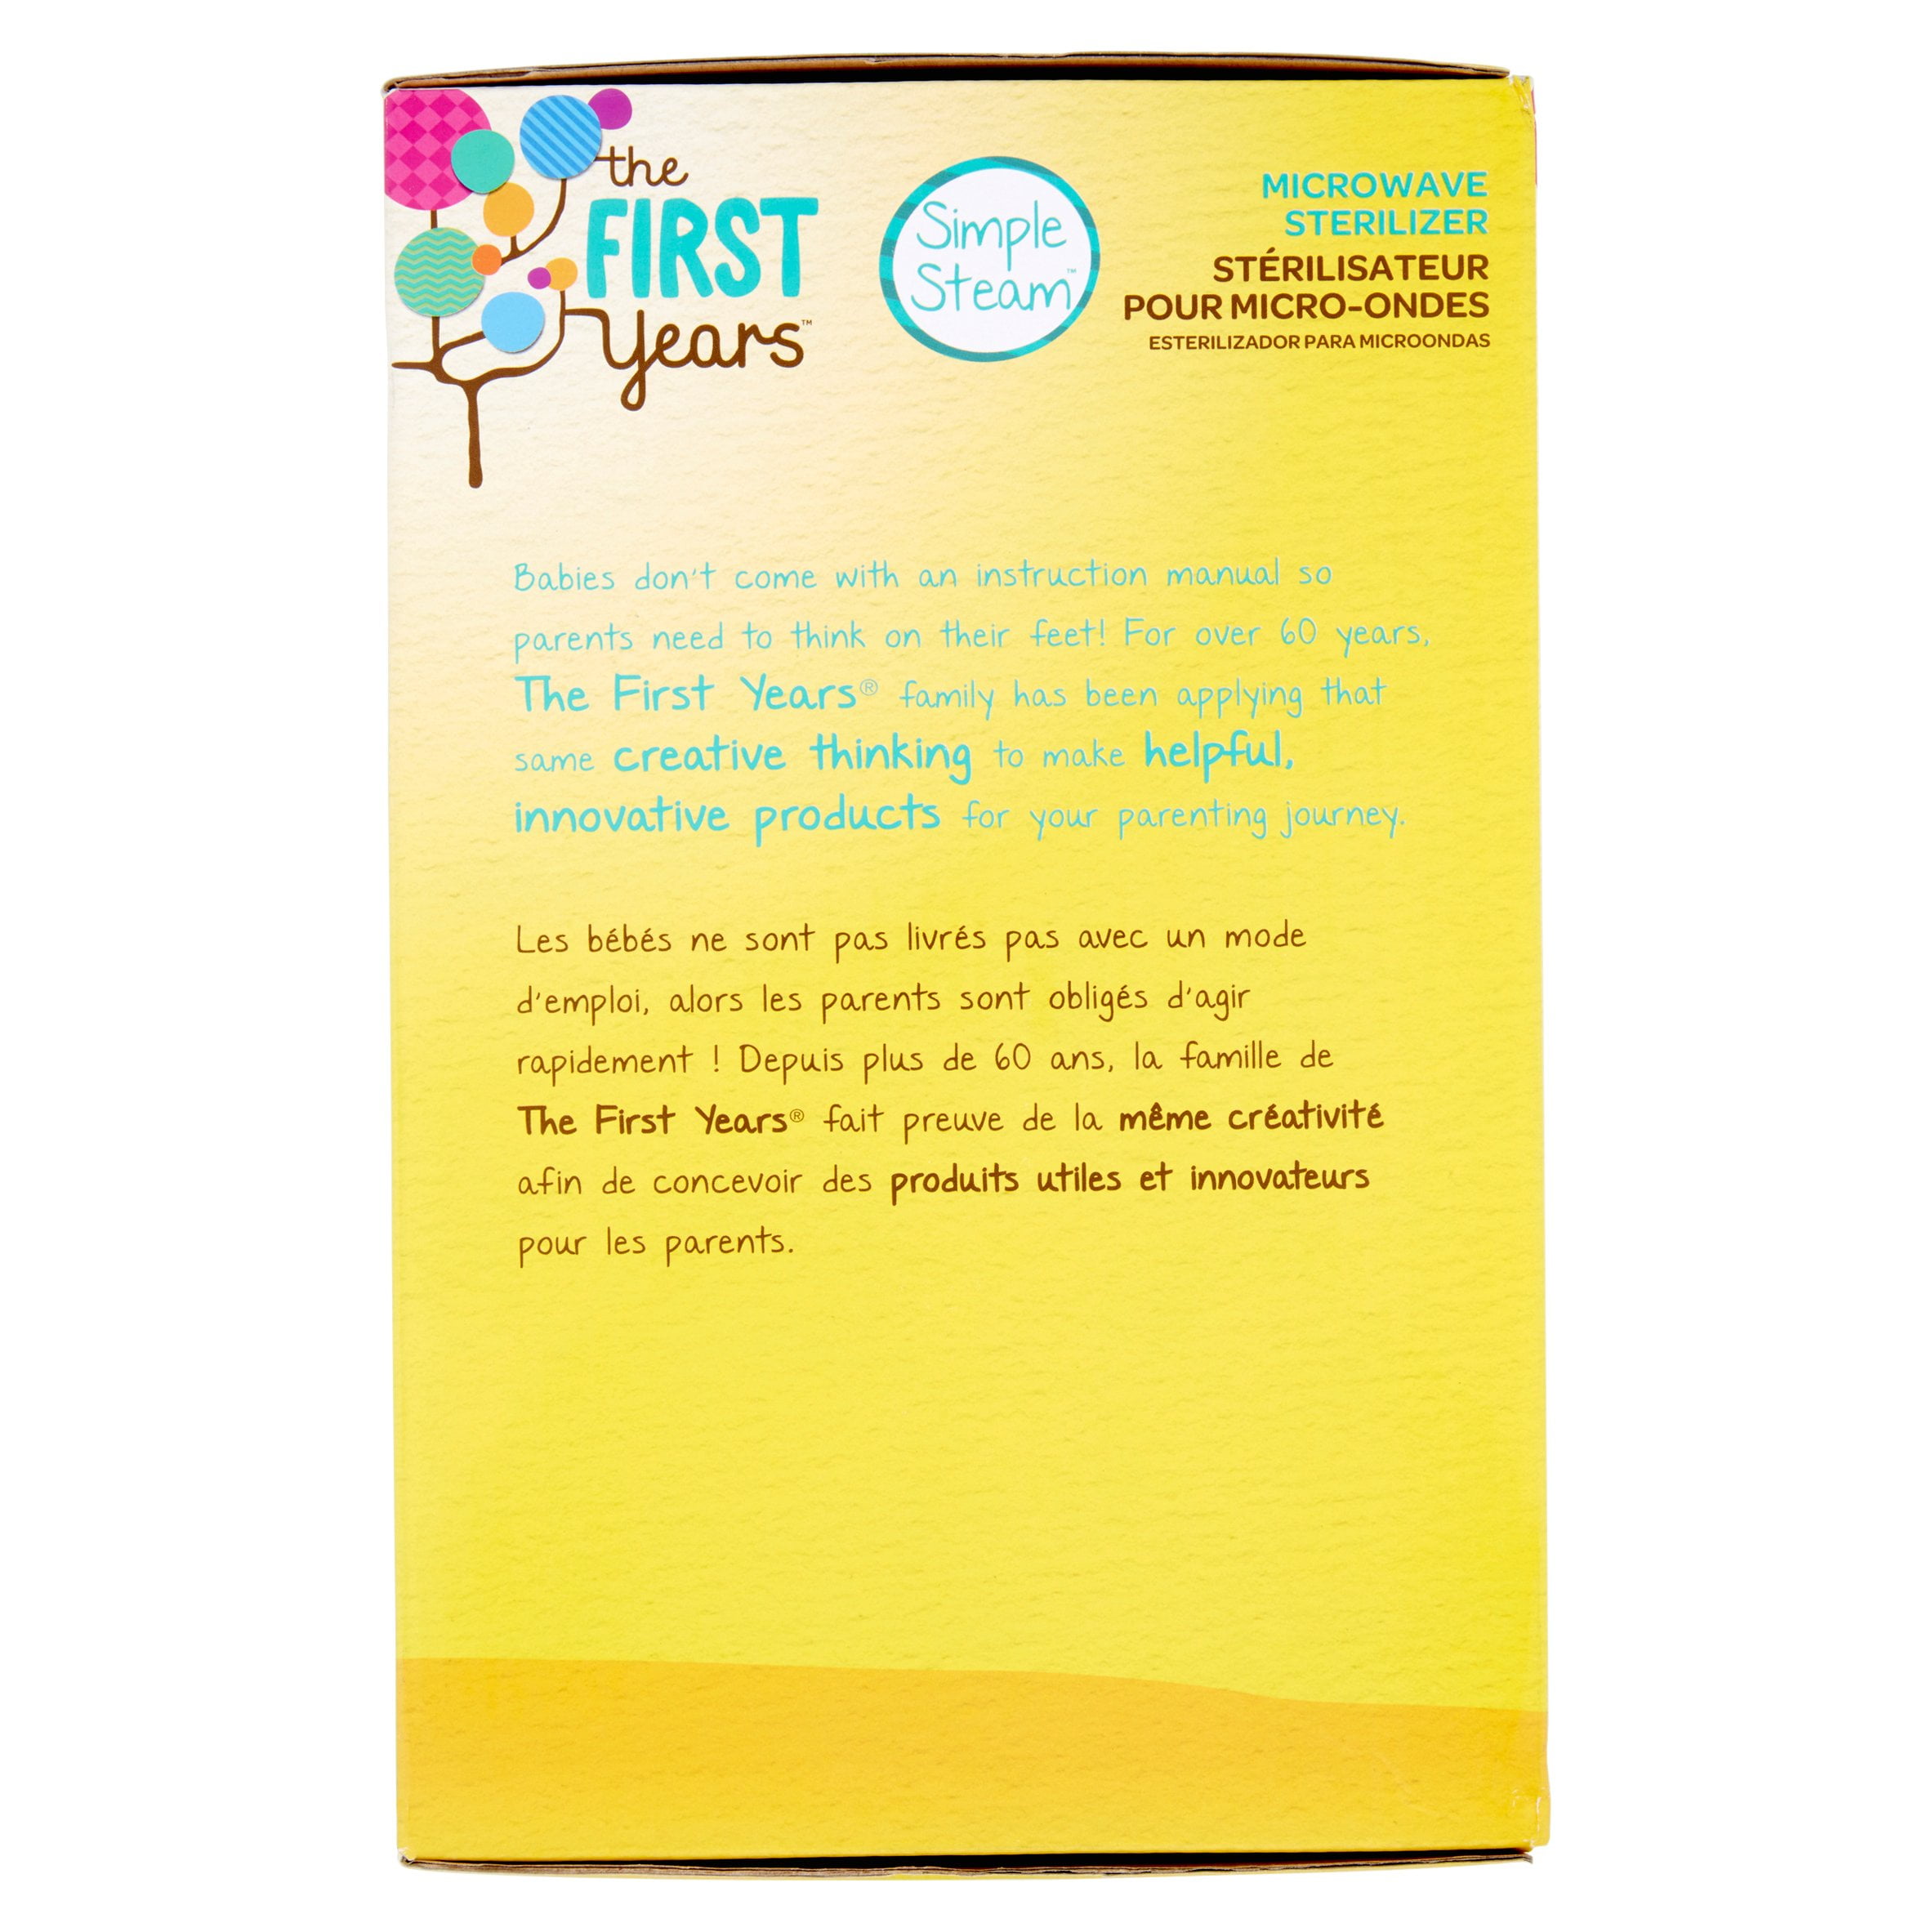 the
FIRST
Years™
Simple
Steam™
MICROWAVE
STERILIZER
STÉRILISATEUR
POUR MICRO-ONDES
ESTERILIZADOR PARA MICROONDAS
Babies don't come with an instruction manual so
parents need to think on their feet! For over 60 years,
The First Years® family has been applying that
same creative thinking to make helpful,
innovative products for your parenting journey.
Les bébés ne sont pas livrés pas avec un mode
d'emploi, alors les parents sont obligés d'agir
rapidement ! Depuis plus de 60 ans, la famille de
The First Years® fait preuve de la même créativité
afin de concevoir des produits utiles et innovateurs
pour les parents.